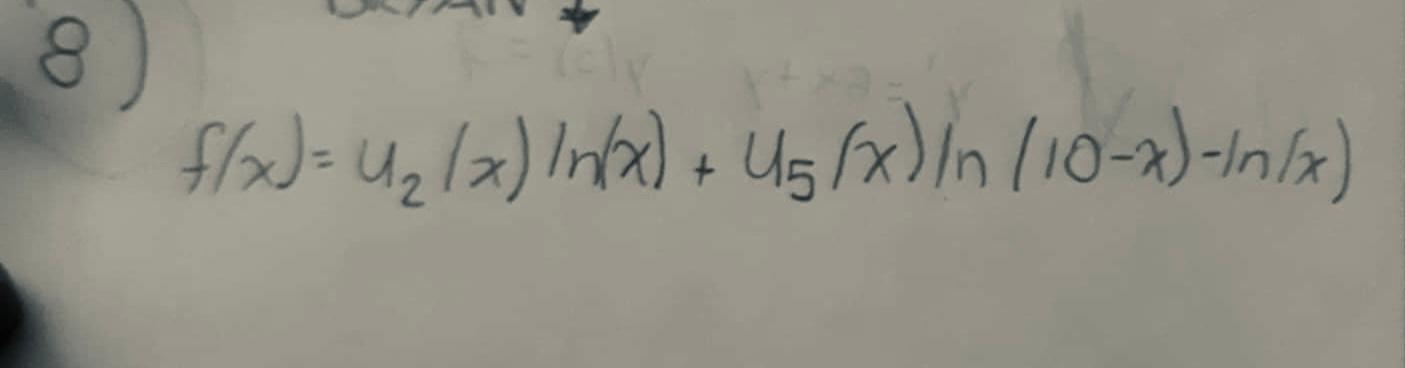 8)
f(x) = u₂(x) ln(x) + u₅(x) ln(10-x) - ln(x)